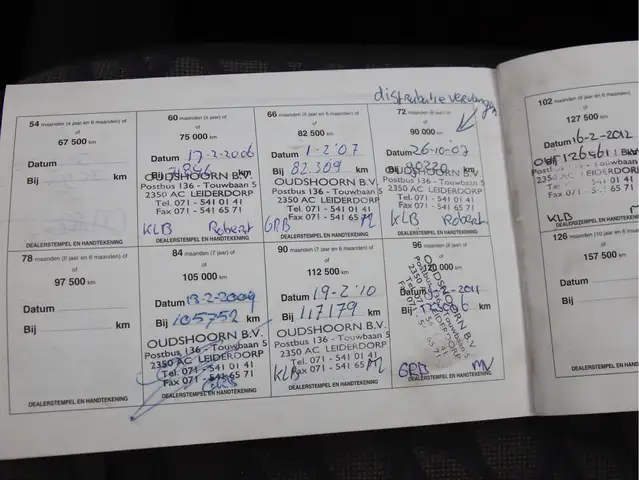 distributie vervangen
54 maanden (4 jaar en 6 maanden) of
of
67 500 km
Datum
Bij km
DEALERSTEMPEL EN HANDTEKENING
60 maanden (5 jaar) of
of
75 000 km
Datum 17-2-2006
Bij
OUDSHOORN B.V.
Postbus 136 - Touwbaan 5
2350 AC LEIDERDORP
Tel. 071 - 541 01 41
Fax 071 - 541 65 71
KLB Robert
DEALERSTEMPEL EN HANDTEKENING
66 maanden (5 jaar en 6 maanden) of
of
82 500 km
Datum 1-2-'07
Bij 82.309 km
OUDSHOORN B.V.
Postbus 136 - Touwbaan 5
2350 AC LEIDERDORP
Tel. 071 - 541 01 41
Fax 071 - 541 65 71
GRB M
DEALERSTEMPEL EN HANDTEKENING
72 maanden
of
90 000 km
Datum 26-10-07
Bij 90220 km
OUDSHOORN B.V.
Postbus 136 - Touwbaan 5
2350 AC LEIDERDORP
Tel. 071 - 541 01 41
Fax 071 - 541 65 71
KLB Robert
DEALERSTEMPEL EN HANDTEKENING
102 maanden
of
127 500 km
Datum 16-2-2012
Bij 126461 km
Postbus 136 - Touwbaan 5
2350 AC LEIDERDORP
Tel. 071 - 541 01 41
Fax 071 - 541 65 71
KLB M
DEALERSTEMPEL EN HANDTEKENING
78 maanden (6 jaar en 6 maanden) of
of
97 500 km
Datum
Bij km
DEALERSTEMPEL EN HANDTEKENING
84 maanden (7 jaar) of
of
105 000 km
Datum 13-2-2009
Bij 105752 km
OUDSHOORN B.V.
Postbus 136 - Touwbaan 5
2350 AC LEIDERDORP
Tel. 071 - 541 01 41
Fax 071 - 541 65 71
DEALERSTEMPEL EN HANDTEKENING
90 maanden (7 jaar en 6 maanden) of
of
112 500 km
Datum 19-2-'10
Bij 117179 km
OUDSHOORN B.V.
Postbus 136 - Touwbaan 5
2350 AC LEIDERDORP
Tel. 071 - 541 01 41
Fax 071 - 541 65 71
KLB M
DEALERSTEMPEL EN HANDTEKENING
96 maanden (8 jaar) of
of
120 000 km
Datum 2011
Bij km
OUDSHOORN B.V.
Postbus 136 - Touwbaan 5
2350 AC LEIDERDORP
Tel. 071 - 541 01 41
Fax 071 - 541 65 71
GRB MV
DEALERSTEMPEL EN HANDTEKENING
126 maanden (10 jaar en 6 maanden)
of
157 500 km
Datum
Bij
DEALERSTEMPEL EN HANDTEKENING